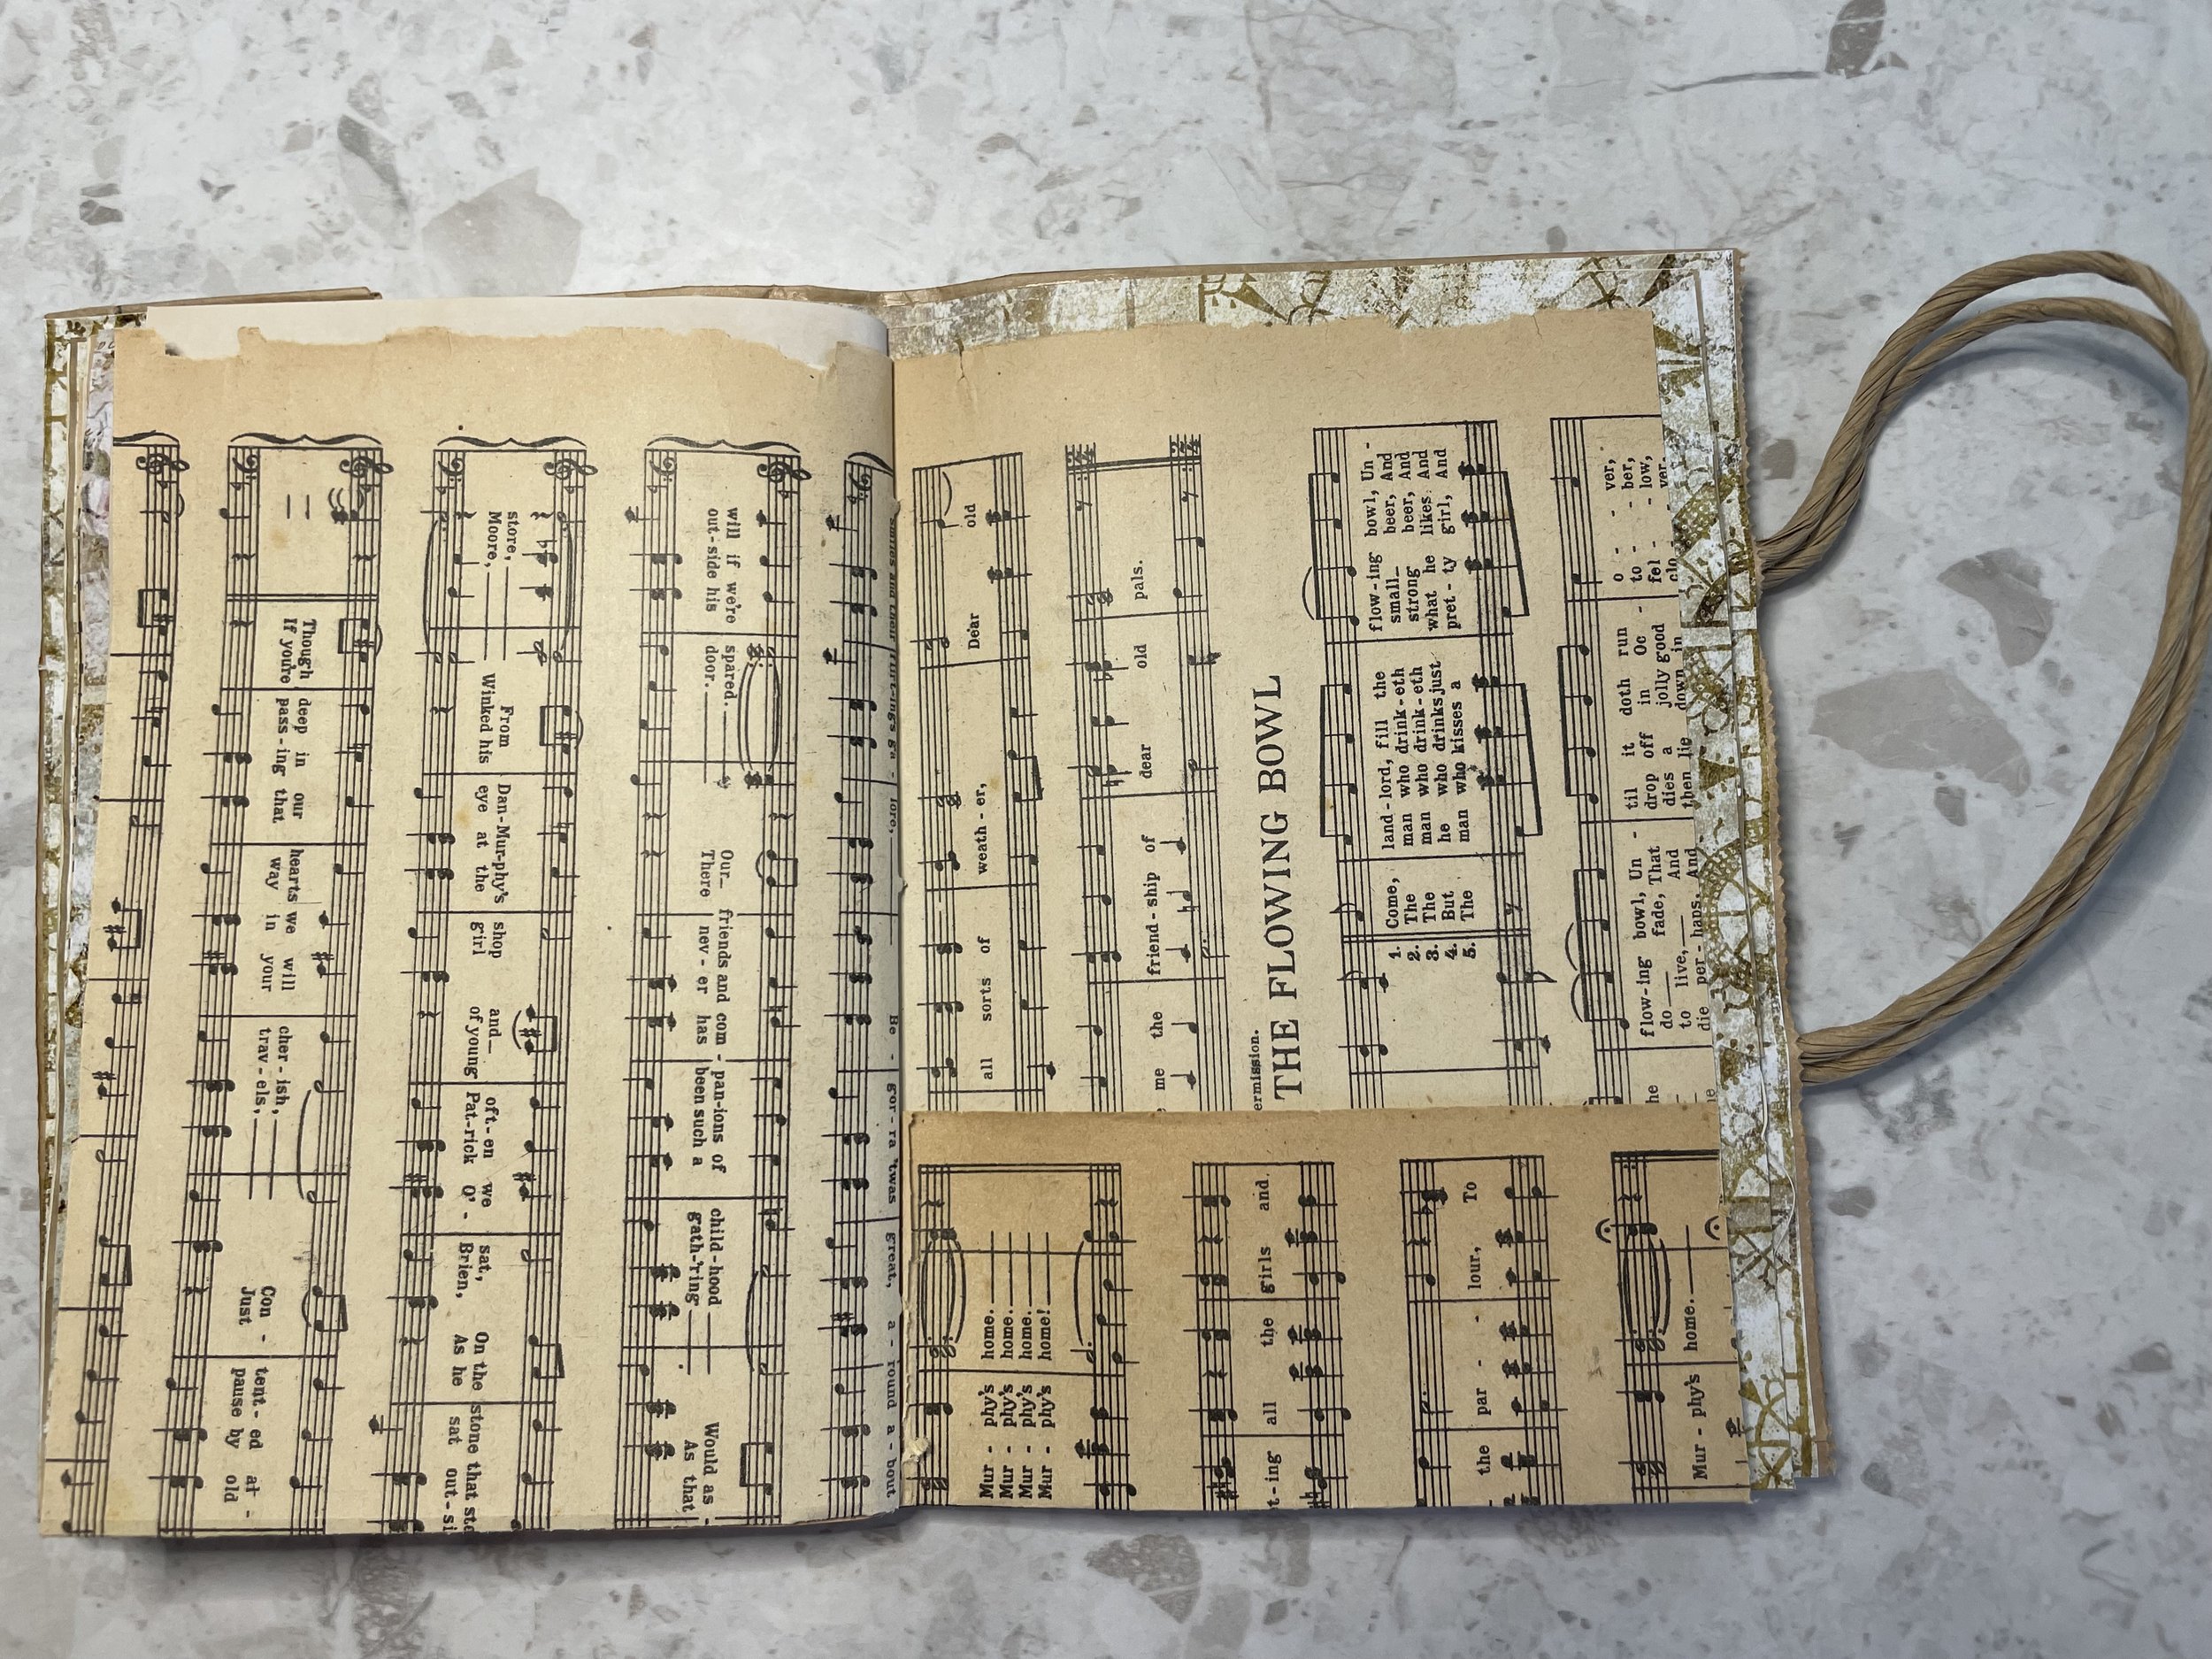 Though deep in our hearts we will cher - ish, Con - tent - ed at -
If you're pass - ing that way in your trav - els, Just pause by old
store, From Dan-Mur-phy's shop and oft - en we sat, On the stone that
Moore, Winked his eye at the girl of young Pat-rick O' - Brien, As he sat out-
will if we're spared. Our friends and com - pan-ions of child-hood Would as
out-side his door. There nev - er has been such a gath-'ring As that
lore, Be - gor - ra 'twas great, a - round a - bout
all sorts of weath - er, Dear old
me the friend - ship of dear old pals.
ermission.
THE FLOWING BOWL
1. Come, land - lord, fill the flow-ing bowl, Un -
2. The man who drink-eth small beer, And
3. The man who drink-eth strong beer, And
4. But he who drinks just what he likes And
5. The man who kisses a pret - ty girl, And
he flow-ing bowl, Un - til it doth run o - - ver,
do fade, That drop off in Oc - to - - ber,
to live, And dies a jolly good fel - - low,
he die per - haps, And then lie down in clo - ver.
Mur - phy's home.
Mur - phy's home.
Mur - phy's home.
Mur - phy's home!
t-ing all the girls and
the par - lour, To
Mur - phy's home.